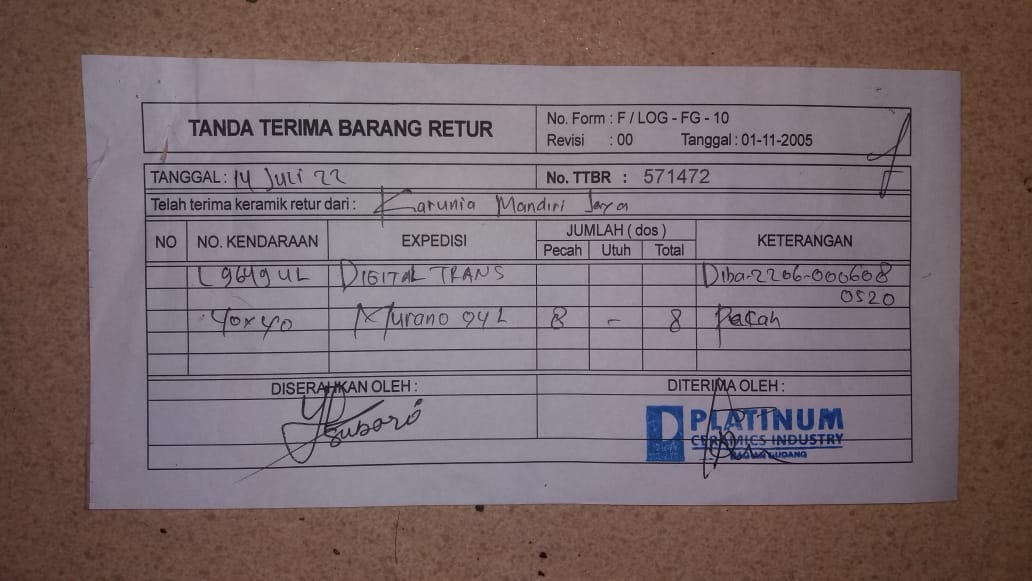 TANDA TERIMA BARANG RETUR
No. Form : F / LOG - FG - 10
Revisi : 00 Tanggal : 01-11-2005
TANGGAL : 14 Juli 22
No. TTBR : 571472
Telah terima keramik retur dari : Karunia Mandiri Jaya
NO NO. KENDARAAN EXPEDISI JUMLAH ( dos ) KETERANGAN
Pecah Utuh Total
L 9649 UL DIGITAL TRANS Diba-2206-000608
0520
40x40 Murano 94L 8 - 8 Pecah
DISERAHKAN OLEH : DITERIMA OLEH :
Suboro
PLATINUM
CERAMICS INDUSTRY
BAGIAN GUDANG